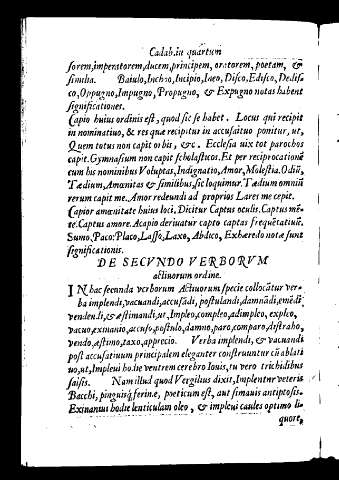 Cadab.in quartum
sorem, imperatorem, ducem, principem, oratorem, poetam, &
similia. Baiulo, Inchoo, Incipio, Ineo, Disco, Edisco, Dedis-
co, Oppugno, Impugno, Propugno, & Expugno notas habent
significationes.
Capio huius ordinis est, quod sic se habet. Locus qui recipit
in nominatiuo, & res quæ recipitur in accusatiuo ponitur, ut,
Quem totus non capit orbis, &c. Ecclesia uix tot parochos
capit. Gymnasium non capit scholasticos. Et per reciprocationē
cum his nominibus Voluptas, Indignatio, Amor, Molestia. Odiū,
Tædium, Amœnitas & similibus, sic loquimur. Tædium omniū
rerum capit me. Amor redeundi ad proprios Lares me cepit.
Capior amœnitate huius loci, Dicitur Captus oculis. Captus mē-
te. Captus amore. A capio deriuatur capto captas frequētatiuū.
Sumo, Paco: Placo, Lasso, Laxo, Abdico, Exhæredo notæ sunt
significationis.
DE SECVNDO VERBORVM
actiuorum ordine.
IN hac secunda verborum Actiuorum specie collocātur ver-
ba implendi, vacuandi, accusādi, postulandi, damnādi, emēdi
vendendi, & æstimandi, ut, Impleo, compleo, adimpleo, expleo,
vacuo, exinanio, accuso, postulo, damno, paro, comparo, distraho,
vendo, æstimo, taxo, apprecio. Verba implendi, & vacuandi
post accusatiuum principalem eleganter construuntur cū ablati
uo, ut, Impleui hodie ventrem cerebro Iouis, tu vero trichidibus
salsis. Nam illud quod Vergilius dixit, Implentur veteris
Bacchi, pinguisq; ferinæ, poeticum est, aut simauis antiptosis.
Exinaniui hodie lenticulam oleo, & impleui caules optimo li-
quore,